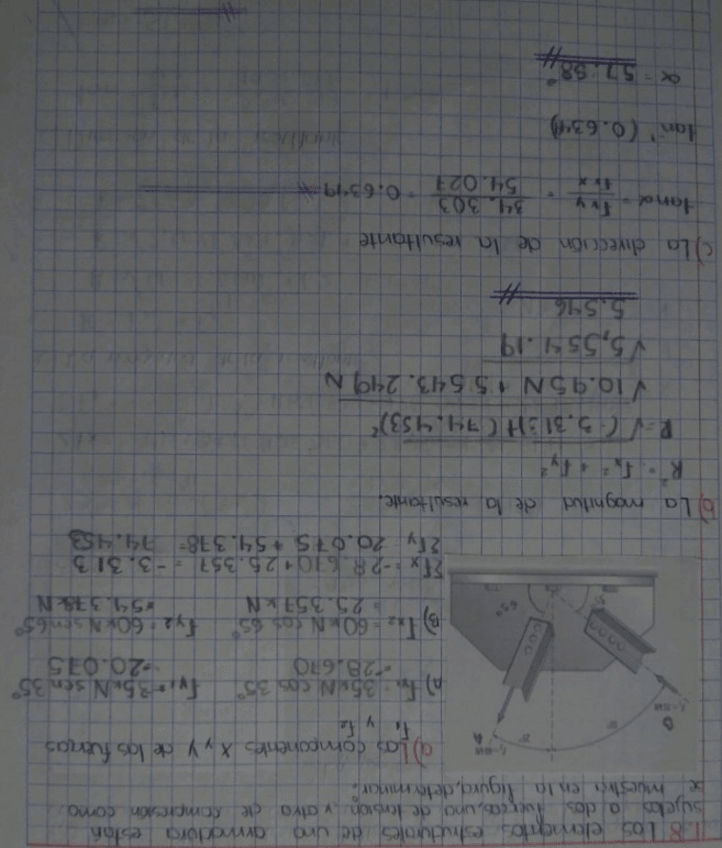 1.8 Los elementos estructurales de una armadura están
sujetos a dos fuerzas, una de tensión y otra de compresión como
se muestra en la figura, determinar.
a) Los components X y Y de las fuerzas
F₁ y F₂
A) Fx₁ = 35kN cos 35° Fy₁ = 35kN sen 35°
= 28.670 = 20.075
B) Fx₂ = 60kN cos 65° Fy₂ = 60kN sen 65°
= 25.357kN = 54.378kN
ΣFx = -28.670 + 25.357 = -3.313
ΣFy = 20.075 + 54.378 = 74.453
b) La magnitud de la resultante.
R² = Fx² + Fy²
R = √(-3.313)+(74.453)²
√10.95N + 5543.249N
√5,554.19
5.546
c) La dirección de la resultante
tan α = Fvy / Fvx = 34.303 / 54.027 = 0.6349
tan⁻¹ (0.6349)
α = 57.58°